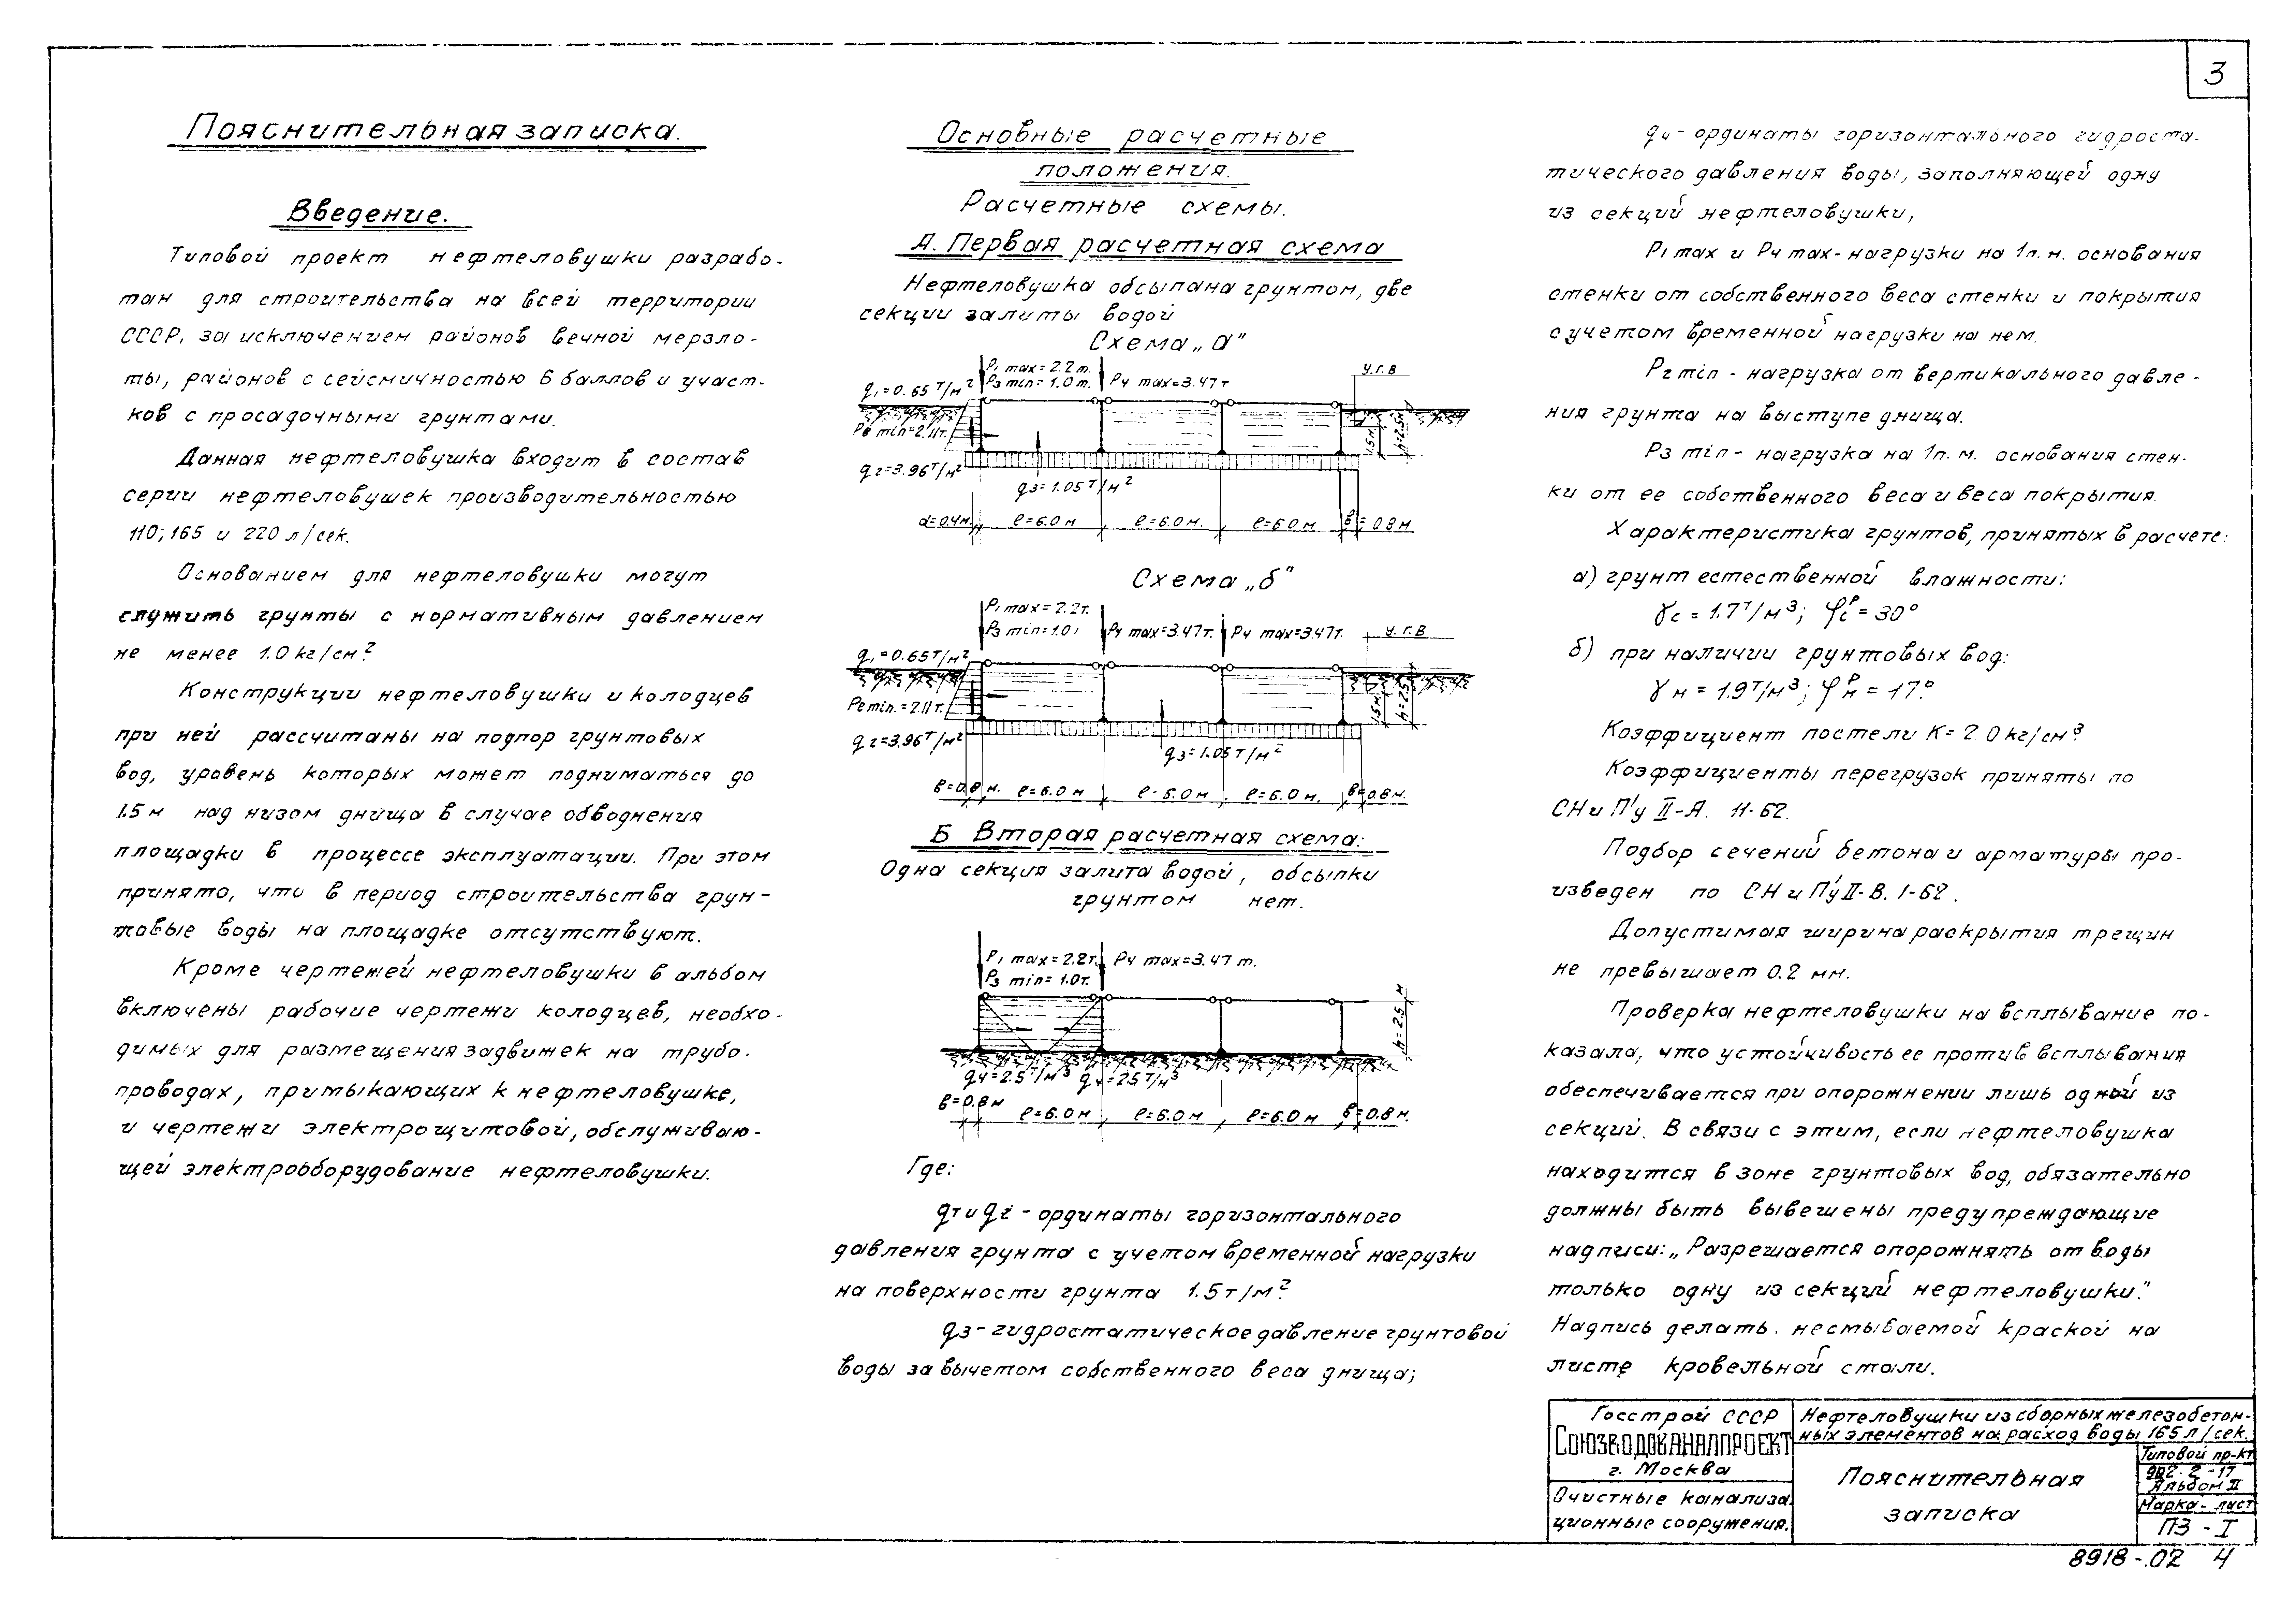 3
Пояснительная записка.
Введение.
Типовой проект нефтеловушки разрабо-
тан для строительства на всей территории
СССР, за исключением районов вечной мерзло-
ты, районов с сейсмичностью 6 баллов и участ-
ков с просадочными грунтами.
Данная нефтеловушка входит в состав
серии нефтеловушек производительностью
110; 165 и 220 л/сек.
Основанием для нефтеловушки могут
служить грунты с нормативным давлением
не менее 1.0 кг/см².
Конструкции нефтеловушки и колодцев
при ней рассчитаны на подпор грунтовых
вод, уровень которых может подниматься до
1.5 м над низом днища в случае обводнения
площадки в процессе эксплуатации. При этом
принято, что в период строительства грун-
товые воды на площадке отсутствуют.
Кроме чертежей нефтеловушки в альбом
включены рабочие чертежи колодцев, необхо-
димых для размещения задвижек на трубо-
проводах, примыкающих к нефтеловушке,
и чертежи электрощитовой, обслуживаю-
щей электрооборудование нефтеловушки.
Основные расчетные
положения.
Расчетные схемы.
А. Первая расчетная схема
Нефтеловушка обсыпана грунтом, две
секции залиты водой
Схема „а"
P₁ max = 2.2 т.
P₃ min = 1.0 т.
P₄ max = 3.47 т
У.Г.В
q₁ = 0.65 т/м²
min = 2.11 т.
q₂ = 3.96 т/м²
q₃ = 1.05 т/м²
1.5 м
h = 2.5 м
d = 0.4 м. ℓ = 6.0 м ℓ = 6.0 м. ℓ = 6.0 м в = 0.8 м
Схема „б"
P₁ max = 2.2 т.
P₃ min = 1.0 т
P₄ max = 3.47 т. P₄ max = 3.47 т. У.Г.В
q₁ = 0.65 т/м²
min. = 2.11 т.
q₂ = 3.96 т/м²
q₃ = 1.05 т/м²
1.5 м
h = 2.5
в = 0.8 м. ℓ = 6.0 м ℓ = 6.0 м ℓ = 6.0 м. в = 0.8 м.
Б Вторая расчетная схема:
Одна секция залита водой, обсыпки
грунтом нет.
P₁ max = 2.2 т. P₄ max = 3.47 т.
P₃ min = 1.0 т.
h = 2.5 м
q₄ = 2.5 т/м³ q₄ = 2.5 т/м³
в = 0.8 м ℓ = 6.0 м ℓ = 6.0 м ℓ = 6.0 м в = 0.8 м.
Где:
q₁ и q₂ - ординаты горизонтального
давления грунта с учетом временной нагрузки
на поверхности грунта 1.5 т/м².
q₃ - гидростатическое давление грунтовой
воды за вычетом собственного веса днища;
q₄ - ординаты горизонтального гидроста-
тического давления воды, заполняющей одну
из секций нефтеловушки,
P₁ max и P₄ max - нагрузки на 1 п.м. основания
стенки от собственного веса стенки и покрытия
с учетом временной нагрузки на нем.
P₂ min - нагрузка от вертикального давле-
ния грунта на выступе днища.
P₃ min - нагрузка на 1 п.м. основания стен-
ки от ее собственного веса и веса покрытия.
Характеристика грунтов, принятых в расчете:
а) грунт естественной влажности:
γс = 1.7 т/м³; φᵖс = 30°
б) при наличии грунтовых вод:
γн = 1.9 т/м³; φᵖн = 17°.
Коэффициент постели К = 2.0 кг/см³.
Коэффициенты перегрузок приняты по
СНиП'у II-А. 11-62.
Подбор сечений бетона и арматуры про-
изведен по СНиП'у II-В. 1-62.
Допустимая ширина раскрытия трещин
не превышает 0.2 мм.
Проверка нефтеловушки на всплывание по-
казала, что устойчивость ее против всплывания
обеспечивается при опорожнении лишь одной из
секций. В связи с этим, если нефтеловушка
находится в зоне грунтовых вод, обязательно
должны быть вывешены предупреждающие
надписи: „Разрешается опорожнять от воды
только одну из секций нефтеловушки."
Надпись делать несмываемой краской на
листе кровельной стали.
Госстрой СССР
СОЮЗВОДОКАНАЛПРОЕКТ
г. Москва
Очистные канализа
ционные сооружения.
Нефтеловушки из сборных железобетон-
ных элементов на расход воды 165 л/сек.
Пояснительная
записка
Типовой пр-кт
902.2-17
Альбом II
Марка-лист
ПЗ - I
8918-02 4